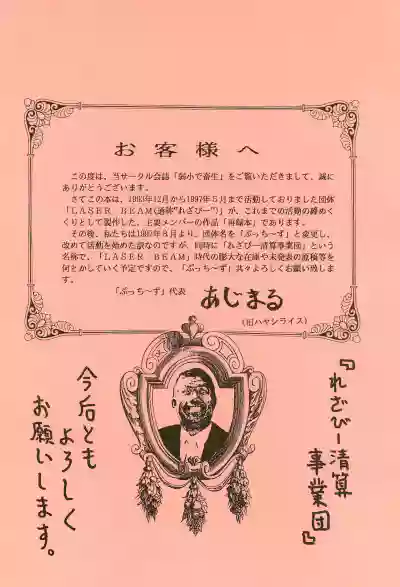 お客様へ
この度は、当サークル会誌「弱小で寄生」をご覧いただきまして、誠に
ありがとうございます。
さてこの本は、1993年12月から1997年5月まで活動しておりました団体
「LASER BEAM(通称"れざびー")」が、これまでの活動の締めく
くりとして製作した、主要メンバーの作品「再録本」であります。
その後、私たちは1997年8月より、団体名を「ぷっち〜ず」と変更し、
改めて活動を始めた訳なのですが、同時に「れざびー清算事業団」という
名称で、「LASER BEAM」時代の膨大な在庫や未発表の原稿等を
何とかしていく予定ですので、「ぷっち〜ず」共々よろしくお願い致しま
す。
「ぷっち〜ず」代表 あじまる
(旧ハヤシライス)
『れざびー清算
事業団』
今后とも
よろしく
お願いします。